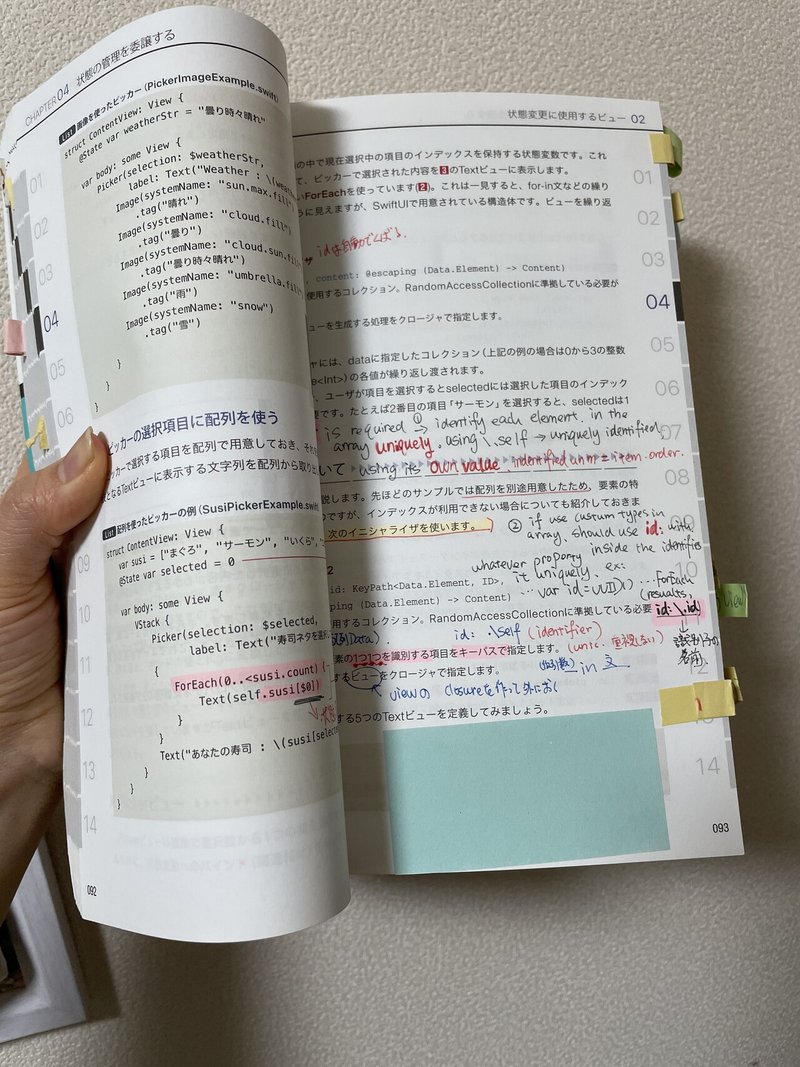 CHAPTER 04 状態の管理を委譲する
List 画像を使ったピッカー（PickerImageExample.swift）
struct ContentView: View {
@State var weatherStr = "曇り時々晴れ"
var body: some View {
Picker(selection: $weatherStr,
label: Text("Weather : \(weat
Image(systemName: "sun.max.fill")
.tag("晴れ")
Image(systemName: "cloud.fill")
.tag("曇り")
Image(systemName: "cloud.sun.fill
.tag("曇り時々晴れ")
Image(systemName: "umbrella.fill"
.tag("雨")
Image(systemName: "snow")
.tag("雪")
}
}
}
ピッカーの選択項目に配列を使う
ッカーで選択する項目を配列で用意しておき、それを
となるTextビューに表示する文字列を配列から取り出
List 配列を使ったピッカーの例（SusiPickerExample.swift
struct ContentView: View {
var susi = ["まぐろ", "サーモン", "いくら",
@State var selected = 0
var body: some View {
VStack {
Picker(selection: $selected,
label: Text("寿司ネタを選択
{
ForEach(0..<susi.count) {
Text(self.susi[$0])
}
}
Text("あなたの寿司 : \(susi[selec
}
}
}
01
02
03
04
05
06
09
10
11
12
13
14
092
状態変更に使用するビュー 02
の中で現在選択中の項目のインデックスを保持する状態変数です。これ
て、ピッカーで選択された内容を3のTextビューに表示します。
いForEachを使っています(2)。これは一見すると、for-in文などの繰り
うに見えますが、SwiftUIで用意されている構造体です。ビューを繰り返
content: @escaping (Data.Element) -> Content)
使用するコレクション。RandomAccessCollectionに準拠している必要が
ューを生成する処理をクロージャで指定します。
ャには、dataに指定したコレクション（上記の例の場合は0から3の整数
e<Int>）の各値が繰り返し渡されます。
、ユーザが項目を選択するとselectedには選択した項目のインデック
要です。たとえば2番目の項目「サーモン」を選択すると、selectedは1
is required ① → identify each element in the
array uniquely. using \.self → uniquely identified
いて using its own value. identified item order.
説します。先ほどのサンプルでは配列を別途用意したため、要素の特
つですが、インデックスが利用できない場合についても紹介しておきま
次のイニシャライザを使います。
② if use custum types in
array, should use id: with
whatever property inside the identifies
it uniquely. ex:
id: KeyPath<Data.Element, ID>,
... var id = UUID() ... forEach
ping (Data.Element) -> Content)
(results,
id: \.id)
用するコレクション。RandomAccessCollectionに準拠している必要
id: \self (identifier)
素の1つ1つを識別する項目をキーパスで指定します。
↓
識別子の
名前
するビューをクロージャで指定します。
in 文
viewの closureを作って外におく
する5つのTextビューを定義してみましょう。
01
02
03
04
05
06
07
08
09
10
11
12
13
14
View
093